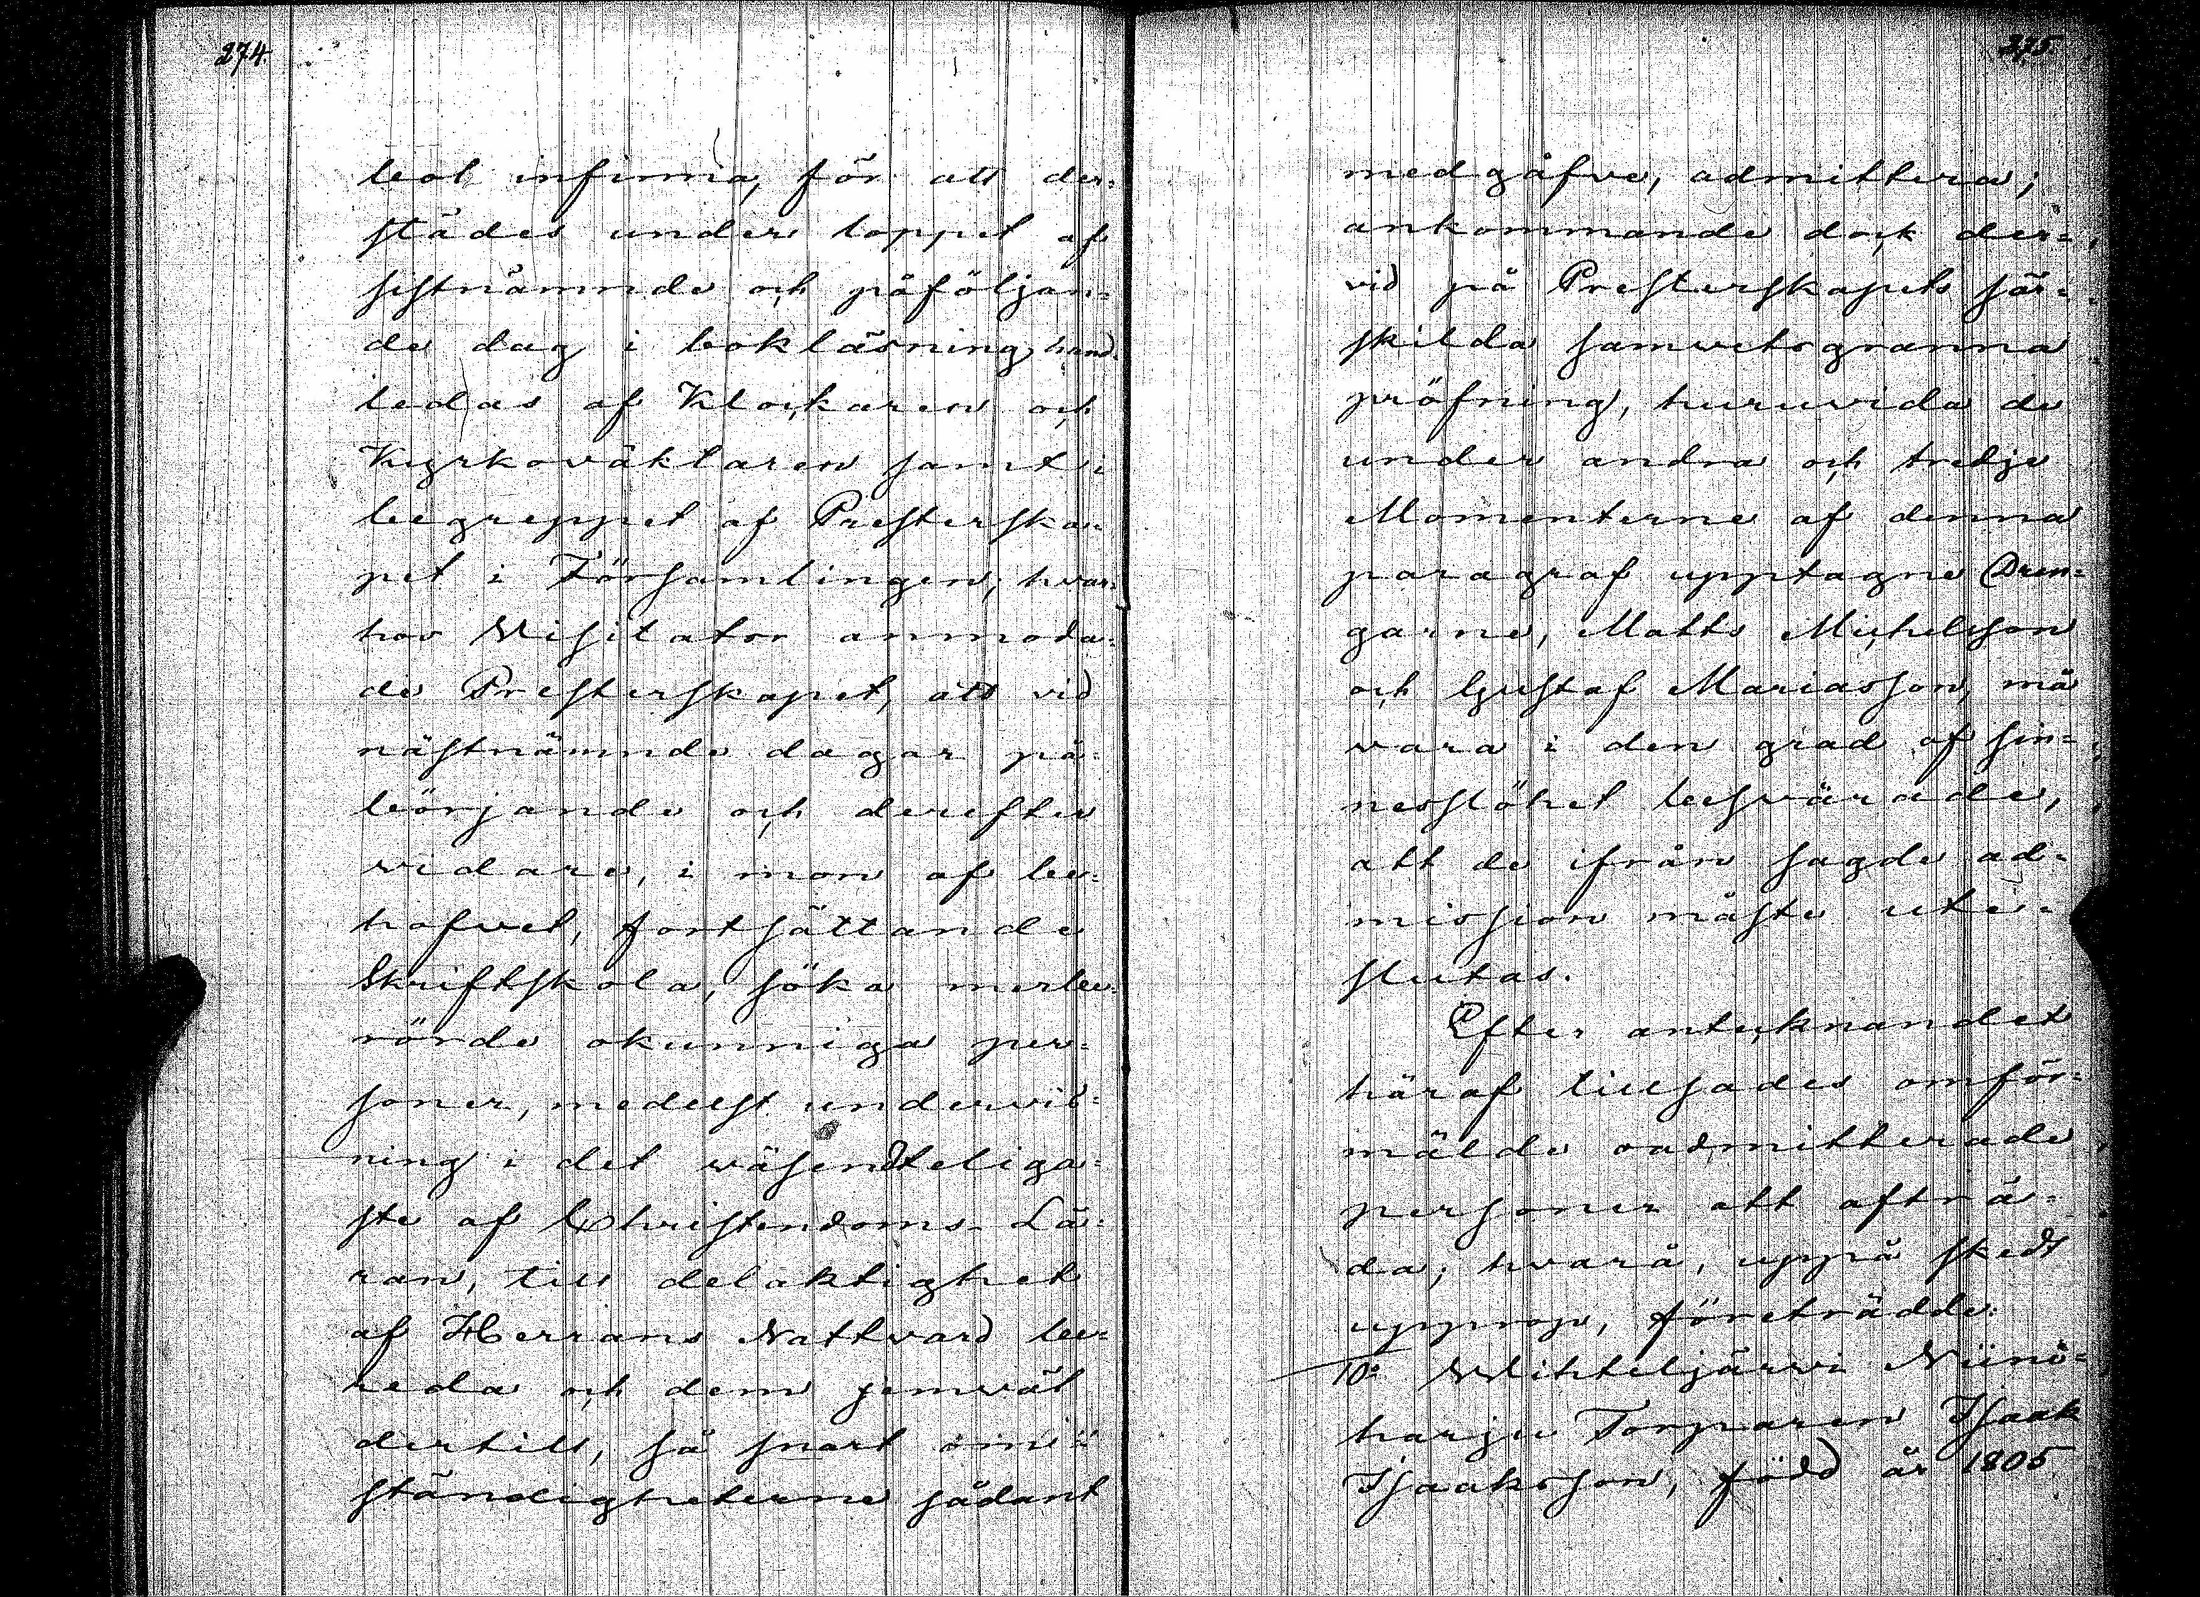 274.
bol infinna, för att der-
städes under loppet af
sistnämnde och påföljan-
de dag i bokläsning hand-
ledas af Klockaren och
Kyrkoväktaren samt i
begreppet af Presterska-
pet i Församlingen; hvar-
hos Visitator anmoda-
de Presterskapet, att vid
nästnämnde dagar på-
börjande och derefter
vidare, i mon af be-
hofvet, fortsättande
Skriftskola, söka merbe-
rörde okunniga per-
soner, medelst undervis-
ning i det väsendteliga-
ste af Christendoms-Lä-
ran, till delaktighet
af Herrans Nattvard be-
reda och dem jemväl
dertill, så snart om-
ständigheterne sådant
275.
medgåfve, admittera;
ankommande dock der-
vid på Presterskapets sär-
skilda samvetsgranna
pröfning, huruvida de
under andra och tredje
Momenterne af denna
paragraf upptagne Dren-
garne, Matts Michelsson
och Gustaf Mariasson, må
vara i den grad af sin-
nesslöhet besvärade,
att de ifrån sagde ad-
mission måste ute-
slutas.
Efter antecknandet
häraf tillsades omför-
mälde oadmitterade
personer att afträ-
da; hvarå, uppå skedt
upprop, företrädde:
10: Wihteljärvi Niini-
harju Torparen Isaak
Isaaksson, född år 1805